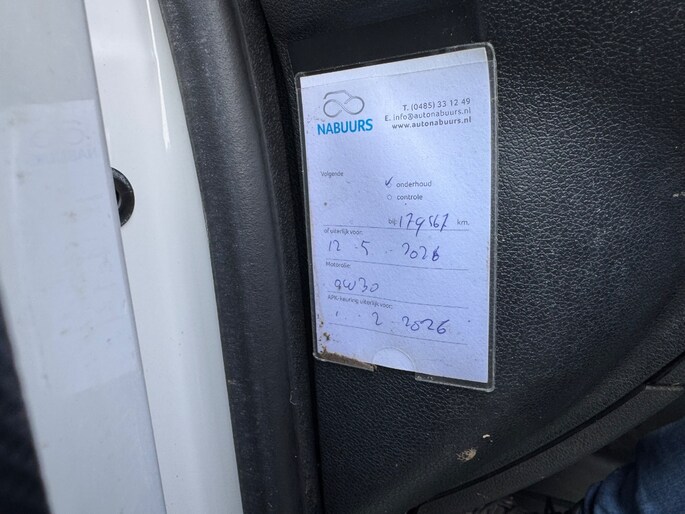 NABUURS
T. (0485) 33 12 49
E. info@autonabuurs.nl
www.autonabuurs.nl
Volgende
✓ onderhoud
○ controle
bij 179567 km.
of uiterlijk voor:
12 5 2026
Motorolie:
0W30
APK-keuring uiterlijk voor:
2 2026